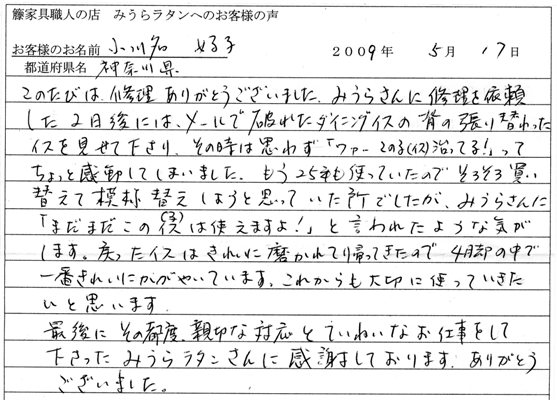 籐家具職人の店　みうらラタンへのお客様の声
お客様のお名前　小川名　好子　　2009年　5月　17日
都道府県名　神奈川県
このたびは、修理ありがとうございました。みうらさんに修理を依頼
した2日後には、メールで破れたダイニングイスの背の張り替わった
イスを見せて下さり、その時は思わず「ワァーこのる(イス)治ってる!」って
ちょっと感動してしまいました。もう25年も使っていたのでそろそろ買い
替えて模様替えしようと思っていた所でしたが、みうらさんに
「まだまだこの(イス)は使えますよ!」と言われたような気が
します。戻ったイスはきれいに磨かれて帰ってきたので4脚の中で
一番きれいにかがやいています。これからも大切に使っていきた
いと思います。
最後にその都度、親切な対応とていねいなお仕事をして
下さったみうらラタンさんに感謝しております。ありがとう
ございました。